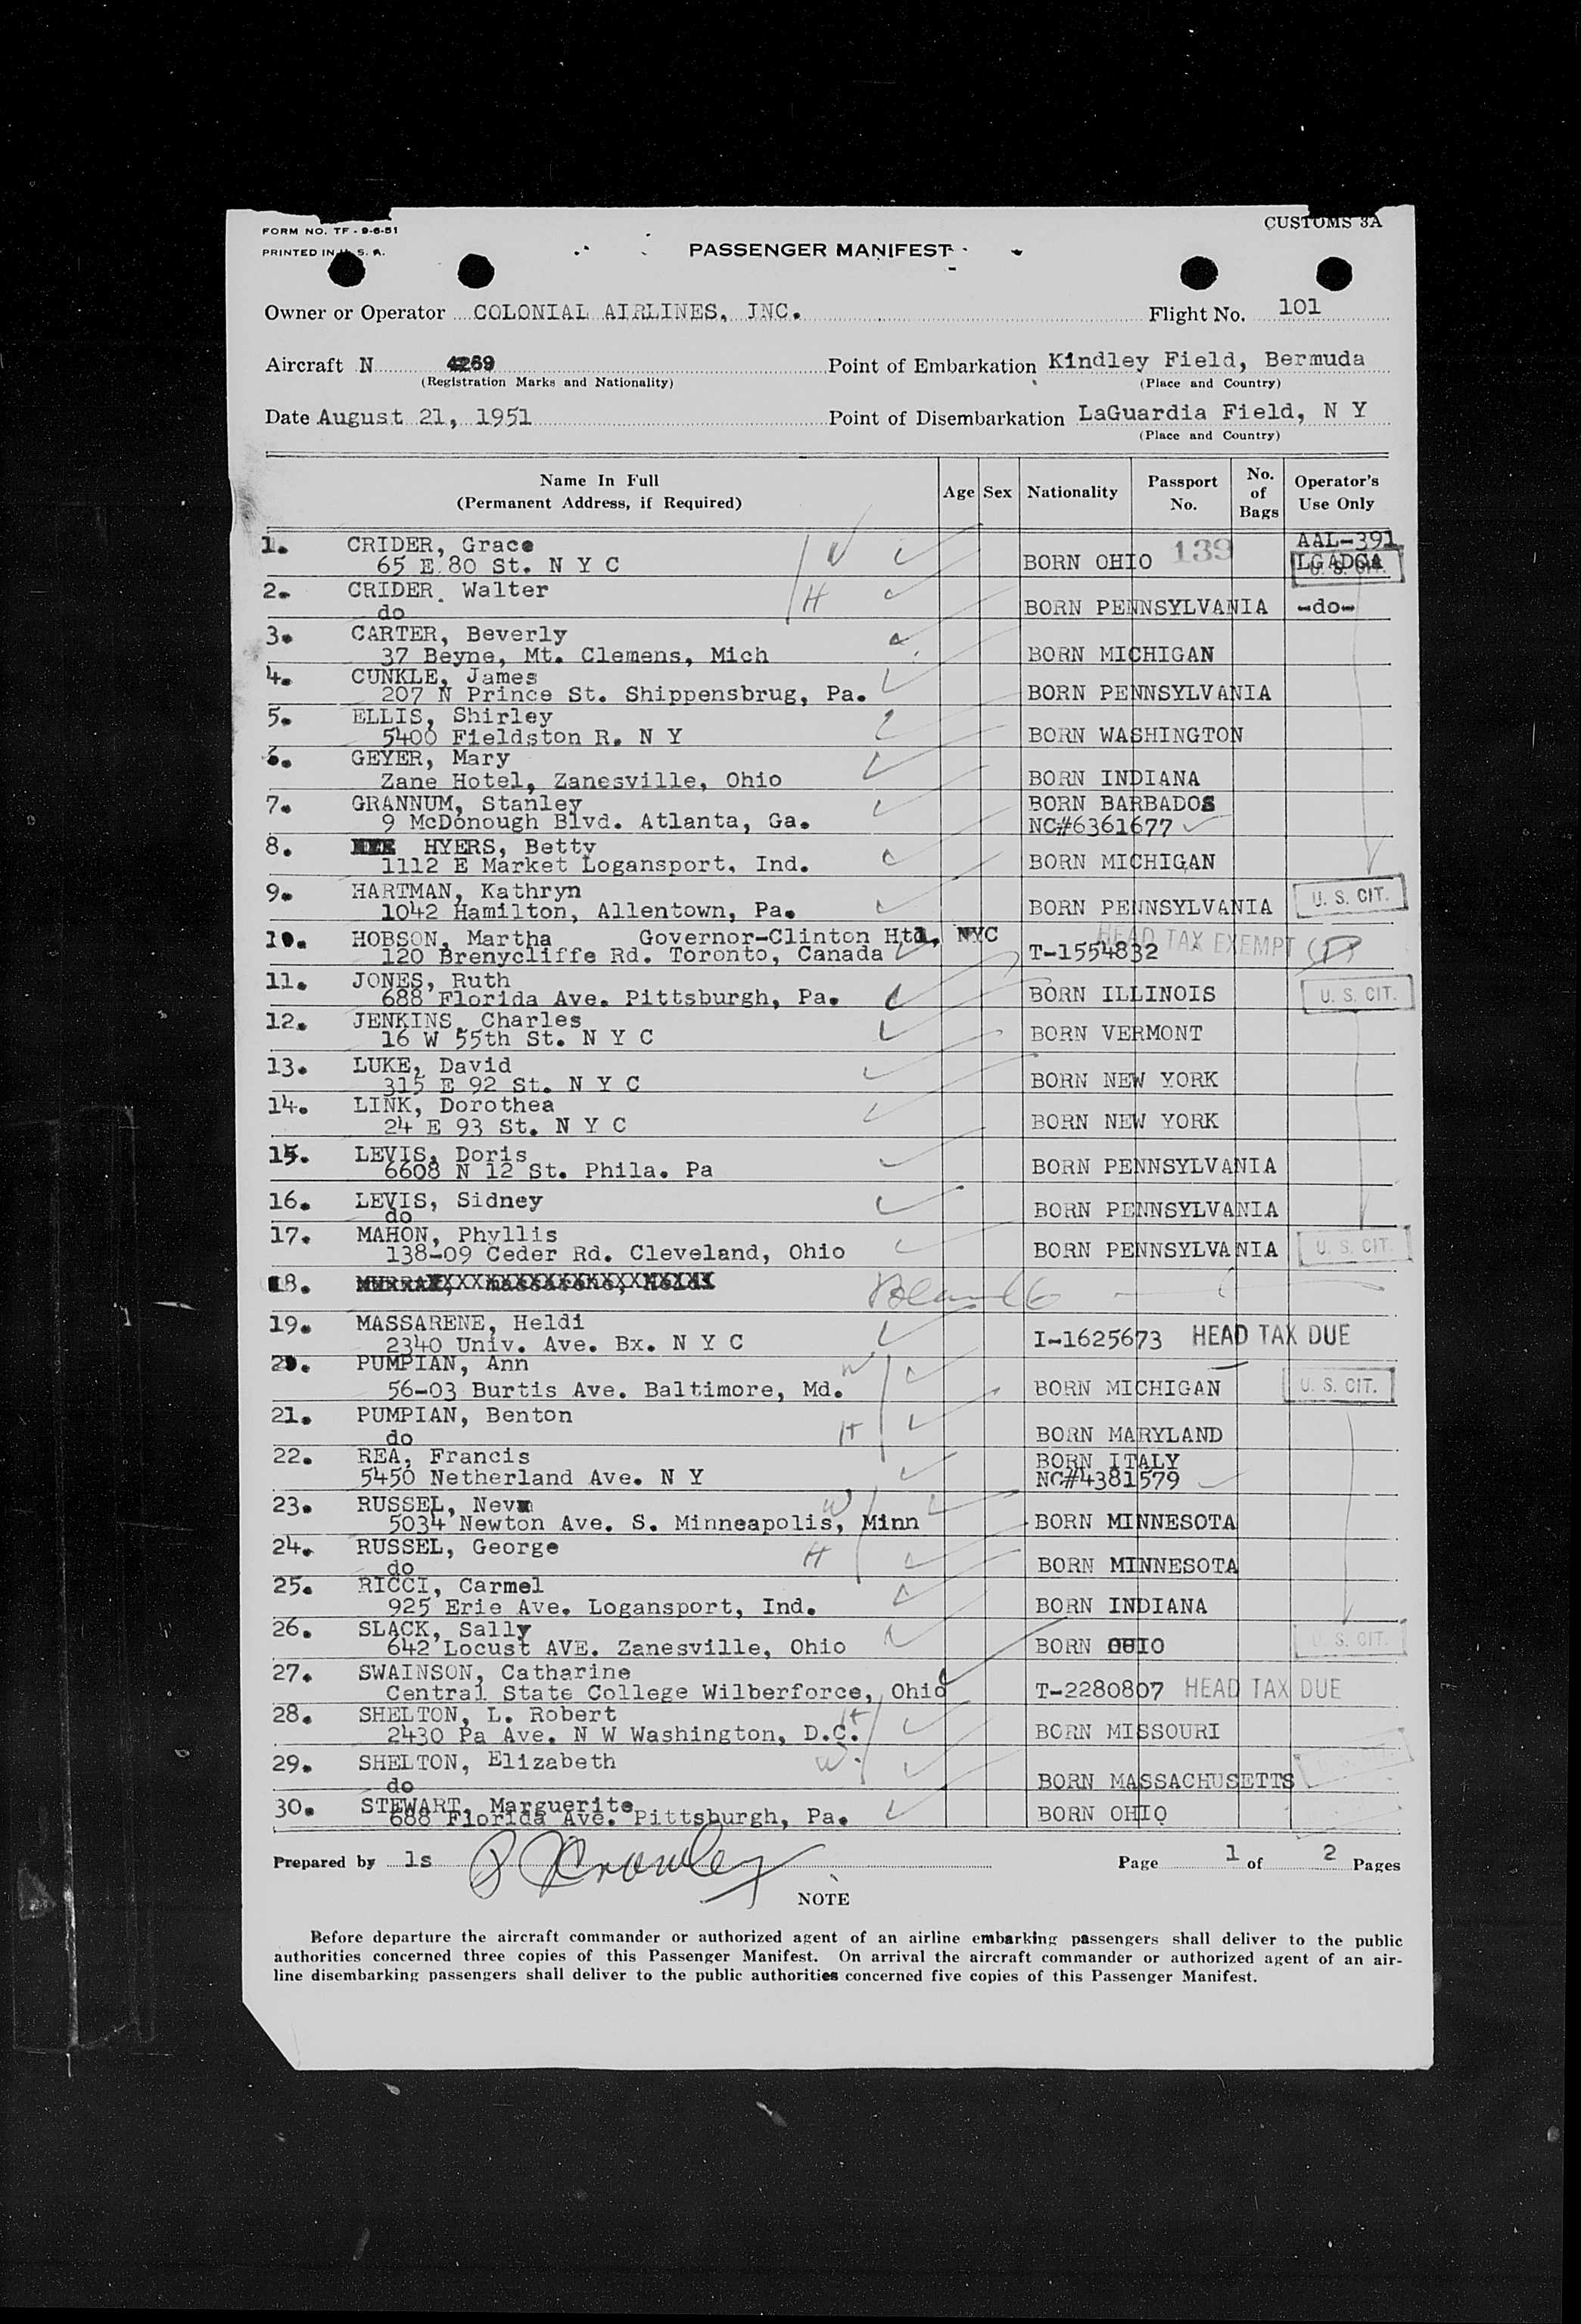 FORM NO. TF - 9-6-51
CUSTOMS 3A
PRINTED IN U. S. A.
PASSENGER MANIFEST
Owner or Operator COLONIAL AIRLINES, INC. Flight No. 101
Aircraft N 4269 Point of Embarkation Kindley Field, Bermuda
(Registration Marks and Nationality) (Place and Country)
Date August 21, 1951 Point of Disembarkation LaGuardia Field, N Y
(Place and Country)
Name In Full (Permanent Address, if Required) Age Sex Nationality Passport No. No. of Bags Operator's Use Only
AAL-391
1. CRIDER, Grace W
65 E 80 St. N Y C BORN OHIO 139 LGADCA U. S. CIT.
2. CRIDER, Walter H
do BORN PENNSYLVANIA -do-
3. CARTER, Beverly
37 Beyne, Mt. Clemens, Mich BORN MICHIGAN
4. CUNKLE, James
207 N Prince St. Shippensbrug, Pa. BORN PENNSYLVANIA
5. ELLIS, Shirley
5400 Fieldston R. N Y BORN WASHINGTON
6. GEYER, Mary
Zane Hotel, Zanesville, Ohio BORN INDIANA
7. GRANNUM, Stanley BORN BARBADOS
9 McDonough Blvd. Atlanta, Ga. NC#6361677
8. HYERS, Betty
1112 E Market Logansport, Ind. BORN MICHIGAN
9. HARTMAN, Kathryn U. S. CIT.
1042 Hamilton, Allentown, Pa. BORN PENNSYLVANIA
10. HOBSON, Martha Governor-Clinton Htl, NYC HEAD TAX EXEMPT
120 Brenycliffe Rd. Toronto, Canada T-1554832
11. JONES, Ruth
688 Florida Ave. Pittsburgh, Pa. BORN ILLINOIS U. S. CIT.
12. JENKINS, Charles
16 W 55th St. N Y C BORN VERMONT
13. LUKE, David
315 E 92 St. N Y C BORN NEW YORK
14. LINK, Dorothea
24 E 93 St. N Y C BORN NEW YORK
15. LEVIS, Doris
6608 N 12 St. Phila. Pa BORN PENNSYLVANIA
16. LEVIS, Sidney
do BORN PENNSYLVANIA
17. MAHON, Phyllis
138-09 Ceder Rd. Cleveland, Ohio BORN PENNSYLVANIA U. S. CIT.
18.
19. MASSARENE, Heldi
2340 Univ. Ave. Bx. N Y C I-1625673 HEAD TAX DUE
20. PUMPIAN, Ann W
56-03 Burtis Ave. Baltimore, Md. BORN MICHIGAN U. S. CIT.
21. PUMPIAN, Benton H
do BORN MARYLAND
22. REA, Francis BORN ITALY
5450 Netherland Ave. N Y NC#4381579
23. RUSSEL, Neva W
5034 Newton Ave. S. Minneapolis, Minn BORN MINNESOTA
24. RUSSEL, George H
do BORN MINNESOTA
25. RICCI, Carmel
925 Erie Ave. Logansport, Ind. BORN INDIANA
26. SLACK, Sally
642 Locust AVE. Zanesville, Ohio BORN OHIO U. S. CIT.
27. SWAINSON, Catharine
Central State College Wilberforce, Ohio T-2280807 HEAD TAX DUE
28. SHELTON, L. Robert H
2430 Pa Ave. N W Washington, D.C. BORN MISSOURI
29. SHELTON, Elizabeth W.
do BORN MASSACHUSETTS U. S. CIT.
30. STEWART, Marguerite
688 Florida Ave. Pittsburgh, Pa. BORN OHIO
Prepared by ls Crowley Page 1 of 2 Pages
NOTE
Before departure the aircraft commander or authorized agent of an airline embarking passengers shall deliver to the public
authorities concerned three copies of this Passenger Manifest. On arrival the aircraft commander or authorized agent of an air-
line disembarking passengers shall deliver to the public authorities concerned five copies of this Passenger Manifest.